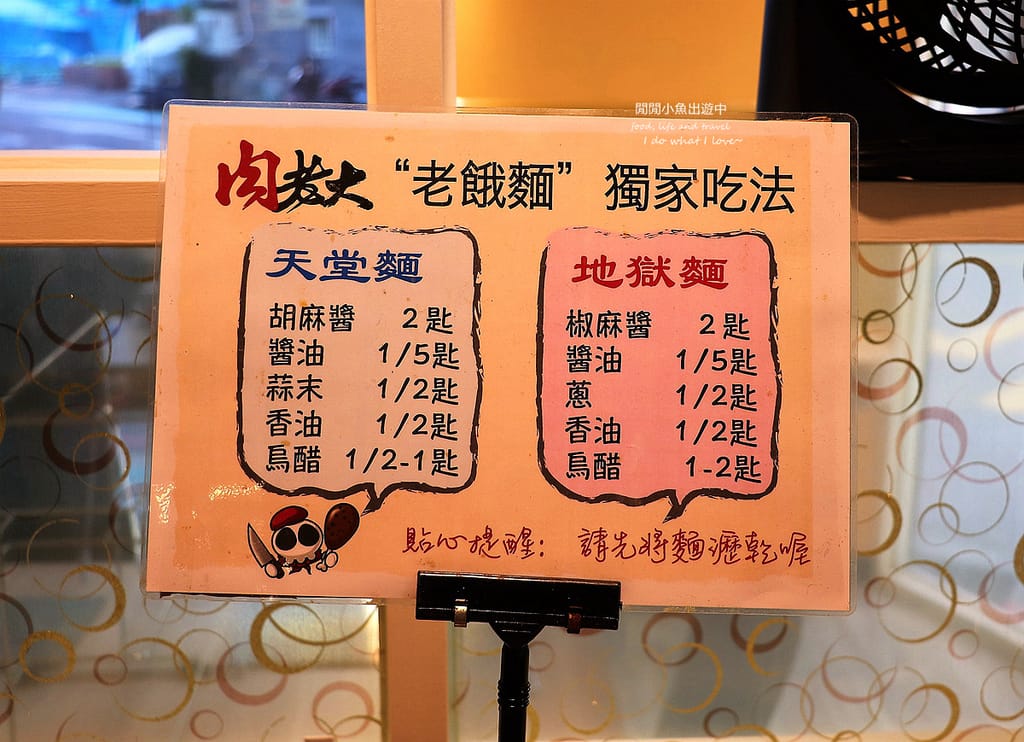 閒閒小魚出遊中
food, life and travel
I do what I love~
肉老大 “老餓麵” 獨家吃法
天堂麵
胡麻醬 2匙
醬油 1/5匙
蒜末 1/2匙
香油 1/2匙
烏醋 1/2-1匙
地獄麵
椒麻醬 2匙
醬油 1/5匙
蔥 1/2匙
香油 1/2匙
烏醋 1-2匙
貼心提醒: 請先將麵瀝乾喔